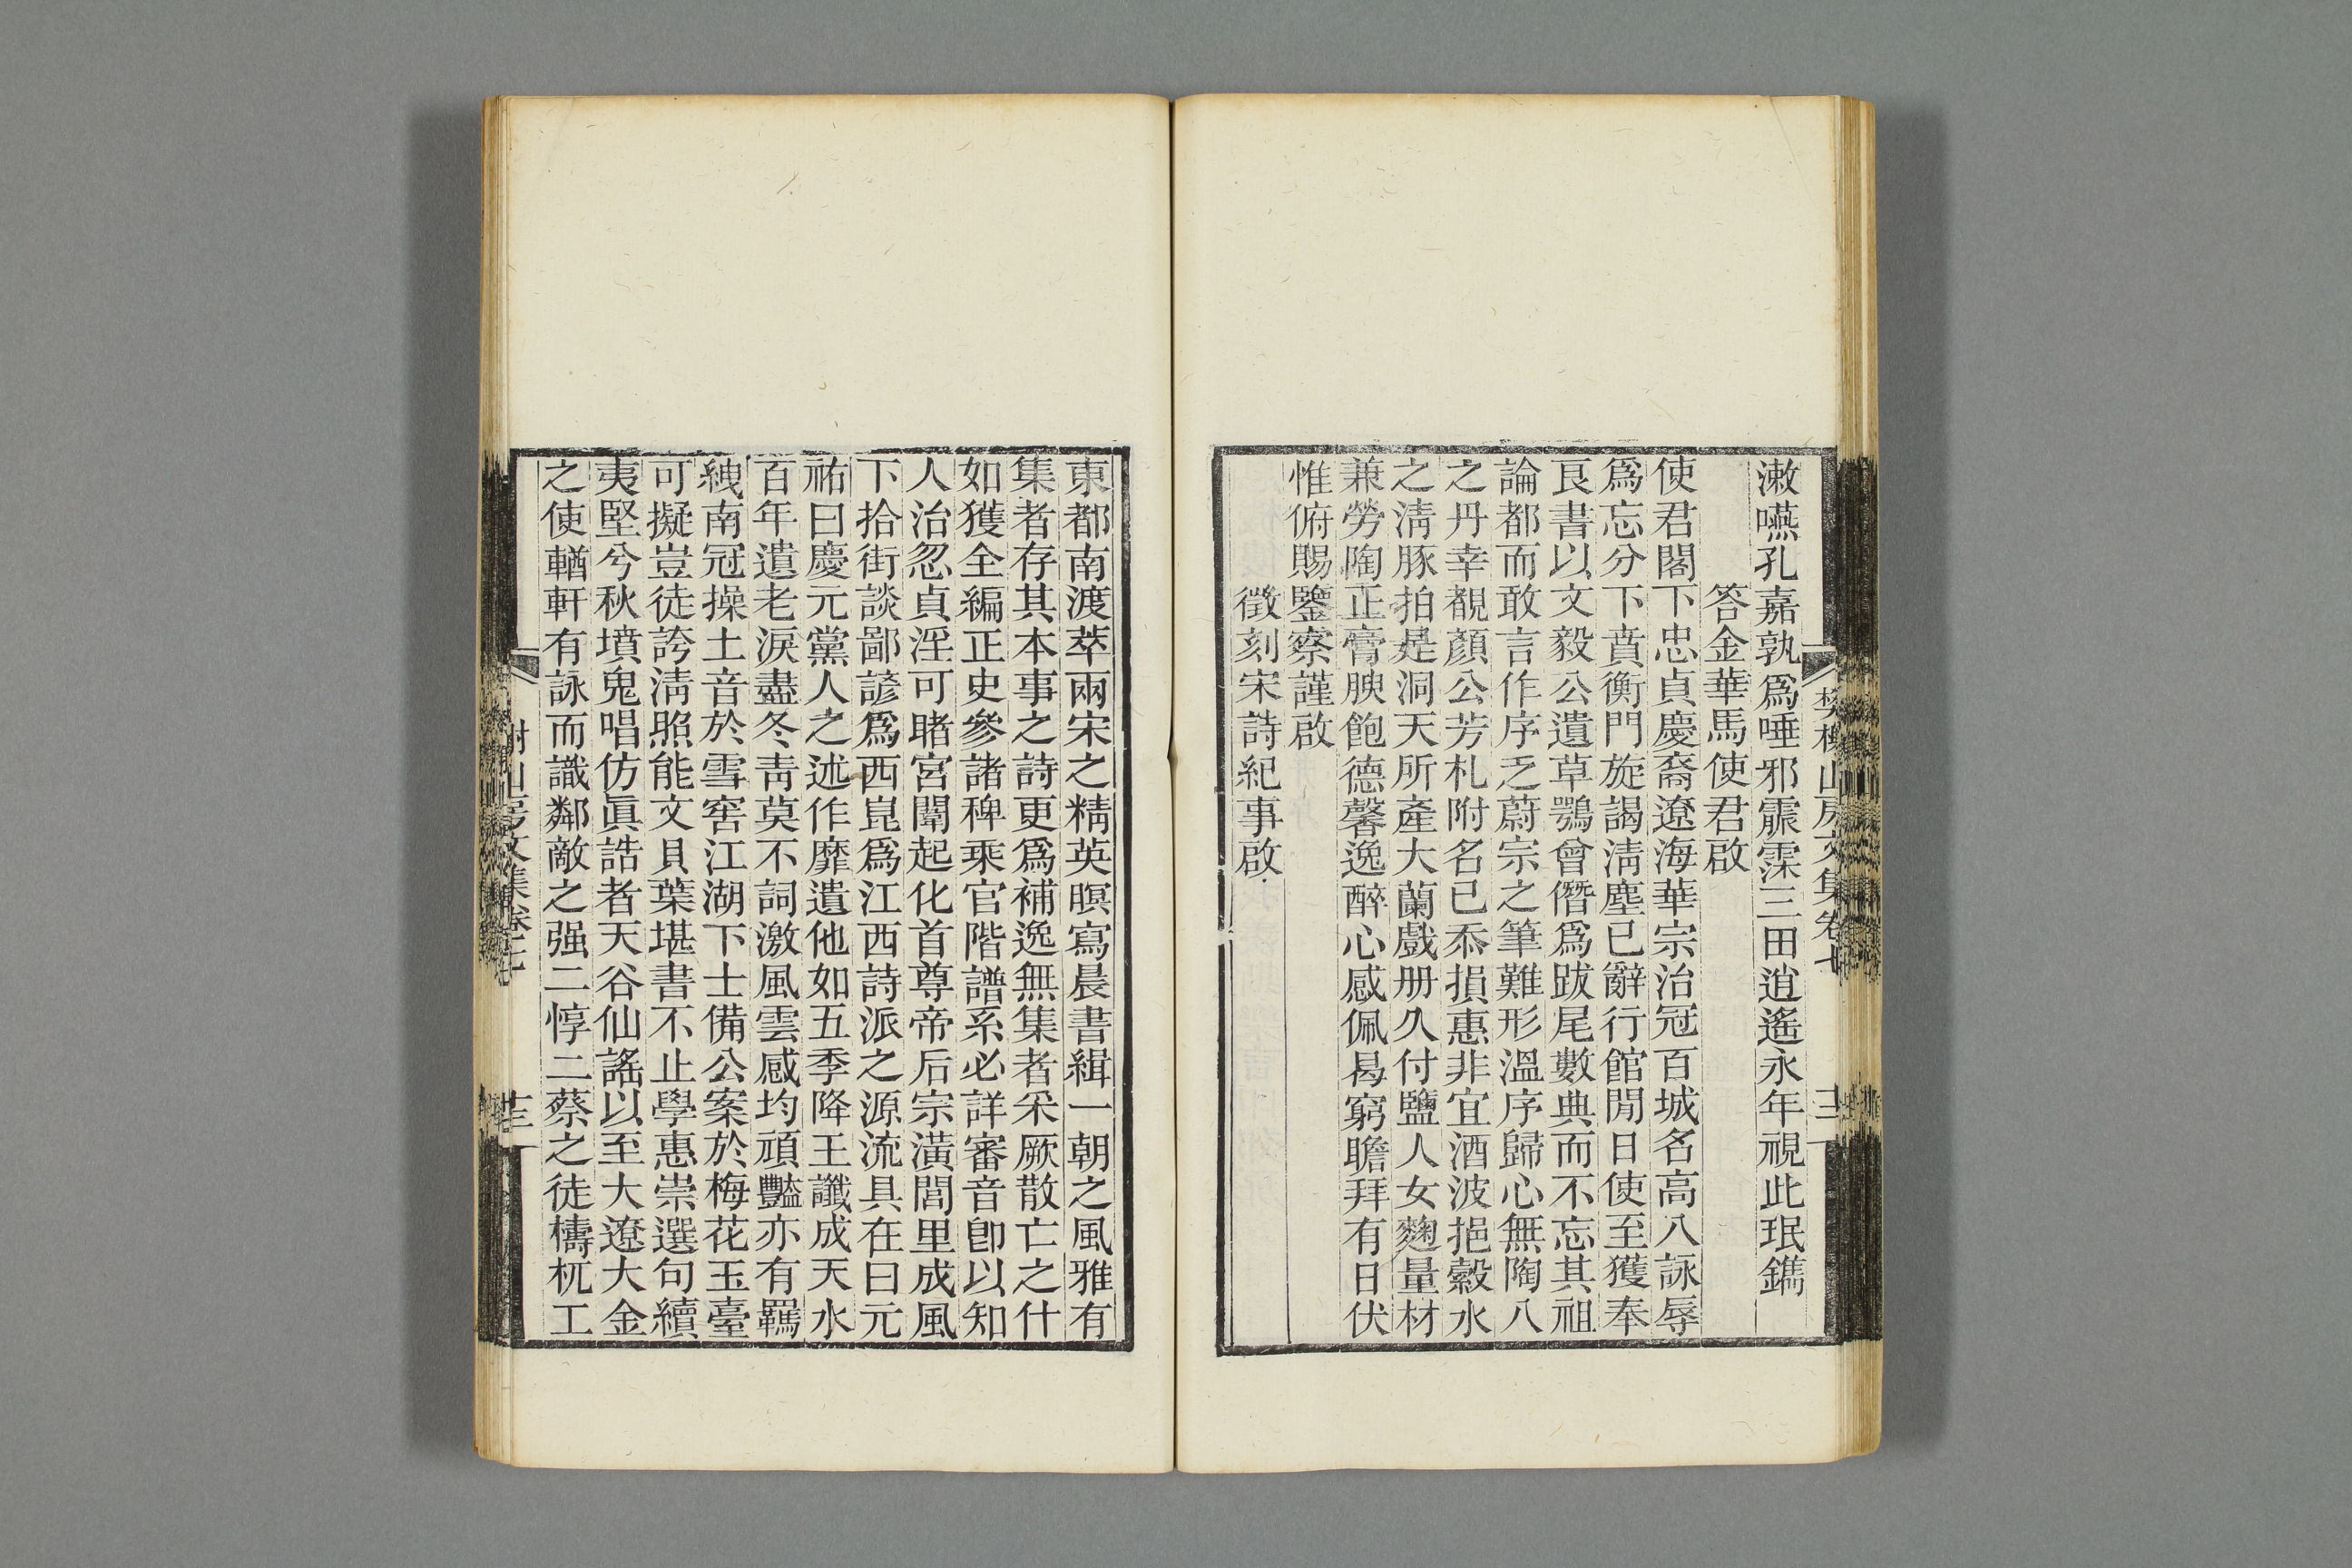 漱嚥孔嘉孰爲唾邪霢霂三田逍遙永年視此珉鐫
答金華馬使君啟
使君閣下忠貞慶裔遼海華宗治冠百城名高八詠辱
爲忘分下賁衡門旋謁淸塵已辭行館閒日使至獲奉
良書以文毅公遺草鶚曾僭爲跋尾數典而不忘其祖
論都而敢言作序乏蔚宗之筆難形溫序歸心無陶八
之丹幸覩顏公芳札附名已忝損惠非宜酒波挹縠水
之淸豚拍是洞天所產大蘭戲册久付鹽人女麴量材
兼勞陶正膏腴飽德馨逸醉心感佩曷窮瞻拜有日伏
惟俯賜鑒察謹啟
徵刻宋詩紀事啟
樊榭山房文集卷七
東都南渡萃兩宋之精英暝寫晨書緝一朝之風雅有
集者存其本事之詩更爲補逸無集者采厥散亡之什
如獲全編正史參諸稗乘官階譜系必詳審音卽以知
人治忽貞淫可睹宮闈起化首尊帝后宗潢閭里成風
下拾街談鄙諺爲西崑爲江西詩派之源流具在曰元
祐曰慶元黨人之述作靡遺他如五季降王讖成天水
百年遺老淚盡冬靑莫不詞激風雲感均頑豔亦有羈
絏南冠操土音於雪窖江湖下士備公案於梅花玉臺
可擬豈徒誇淸照能文貝葉堪書不止學惠崇選句續
夷堅兮秋墳鬼唱仿眞誥者天谷仙謠以至大遼大金
之使輶軒有詠而識鄰敵之强二惇二蔡之徒檮杌工
榭山房文集卷七
十三